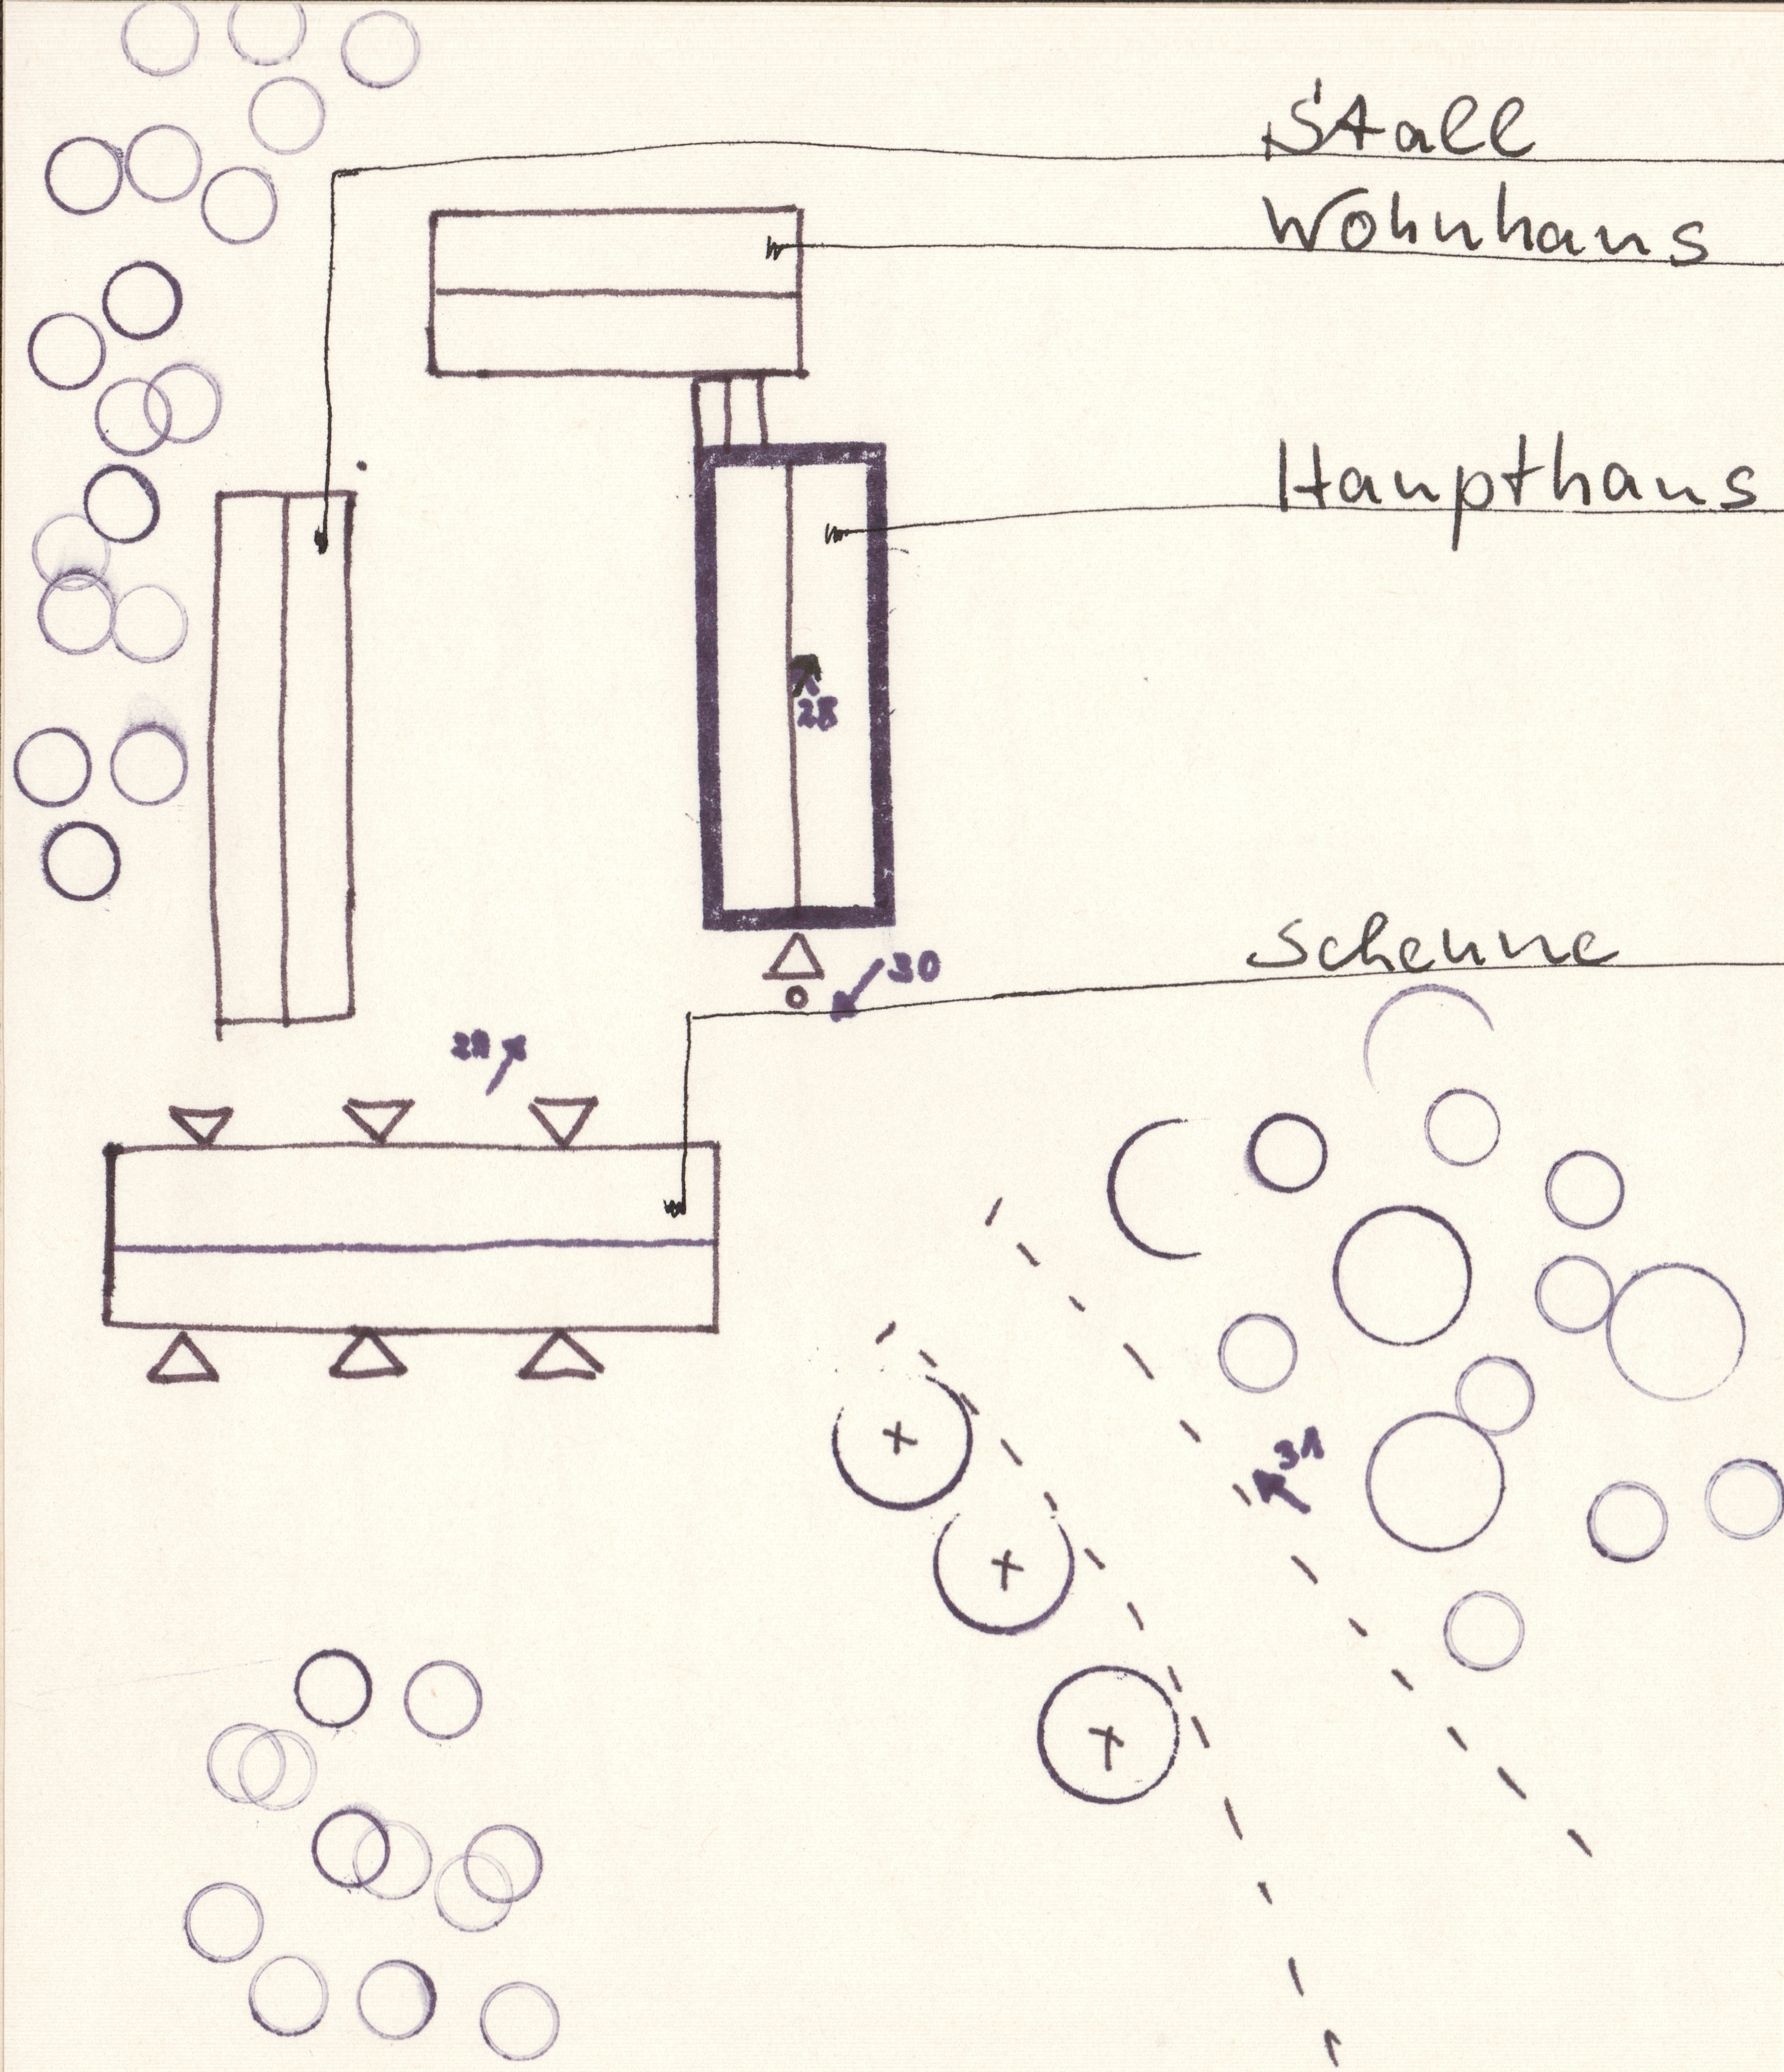 Stall
Wohnhaus
Haupthaus
28
Scheune
30
31